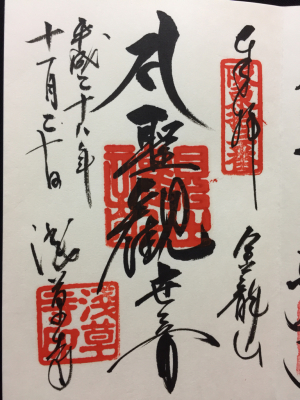 奉拝
金龍山
聖観世音
平成二十八年
十一月二十日
浅草寺
淺草
寺印